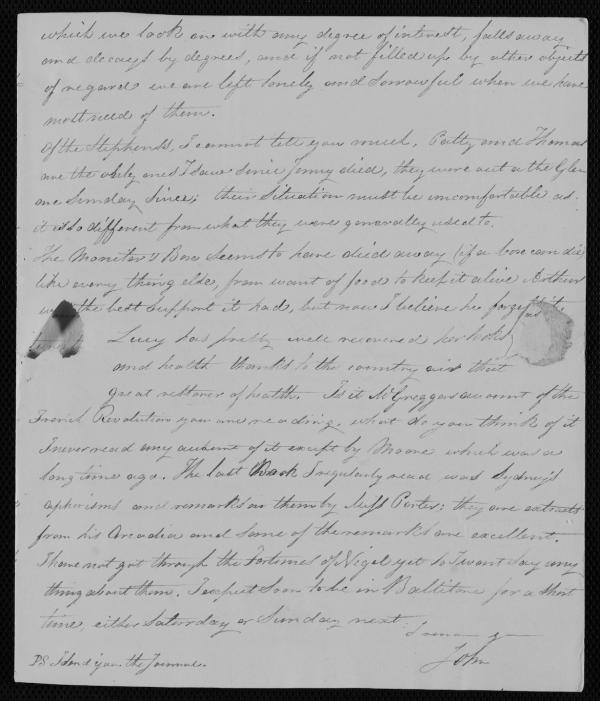 which we look on with any degree of interest, falls away
and decays by degrees, and if not filled up by other objects
of regard we are left lonely and sorrowful when we have
most need of them.
Of the Stephens's, I cannot tell you much, Patty and Thomas
are the only ones I saw since Jenny died, they were out at the Glen
one Sunday since; their situation must be uncomfortable as
it is so different from what they were generally used to.
The Monster's Bow seems to have died away (if a bow can die)
like every thing else, from want of food to keep it alive Arthur
was the best support it had, but now I believe he forgets it.
Lucy has pretty well recovered her looks
and health thanks to the country air that
great restorer of health. Is it McGreggors account of the
French Revolution you are reading, what do you think of it
I never read any account of it except by Moore which was a
long time ago. The last Book I regularly read was Sydney's
aphorisms and remarks on them by Miss Porter; they are extracts
from his Arcadia and some of the remarks are excellent.
I have not got through the Fortunes of Nigel yet so I want say any
thing about them. I expect soon to be in Baltimore for a short
time, either Saturday or Sunday next
John
PS I send you the Journal.